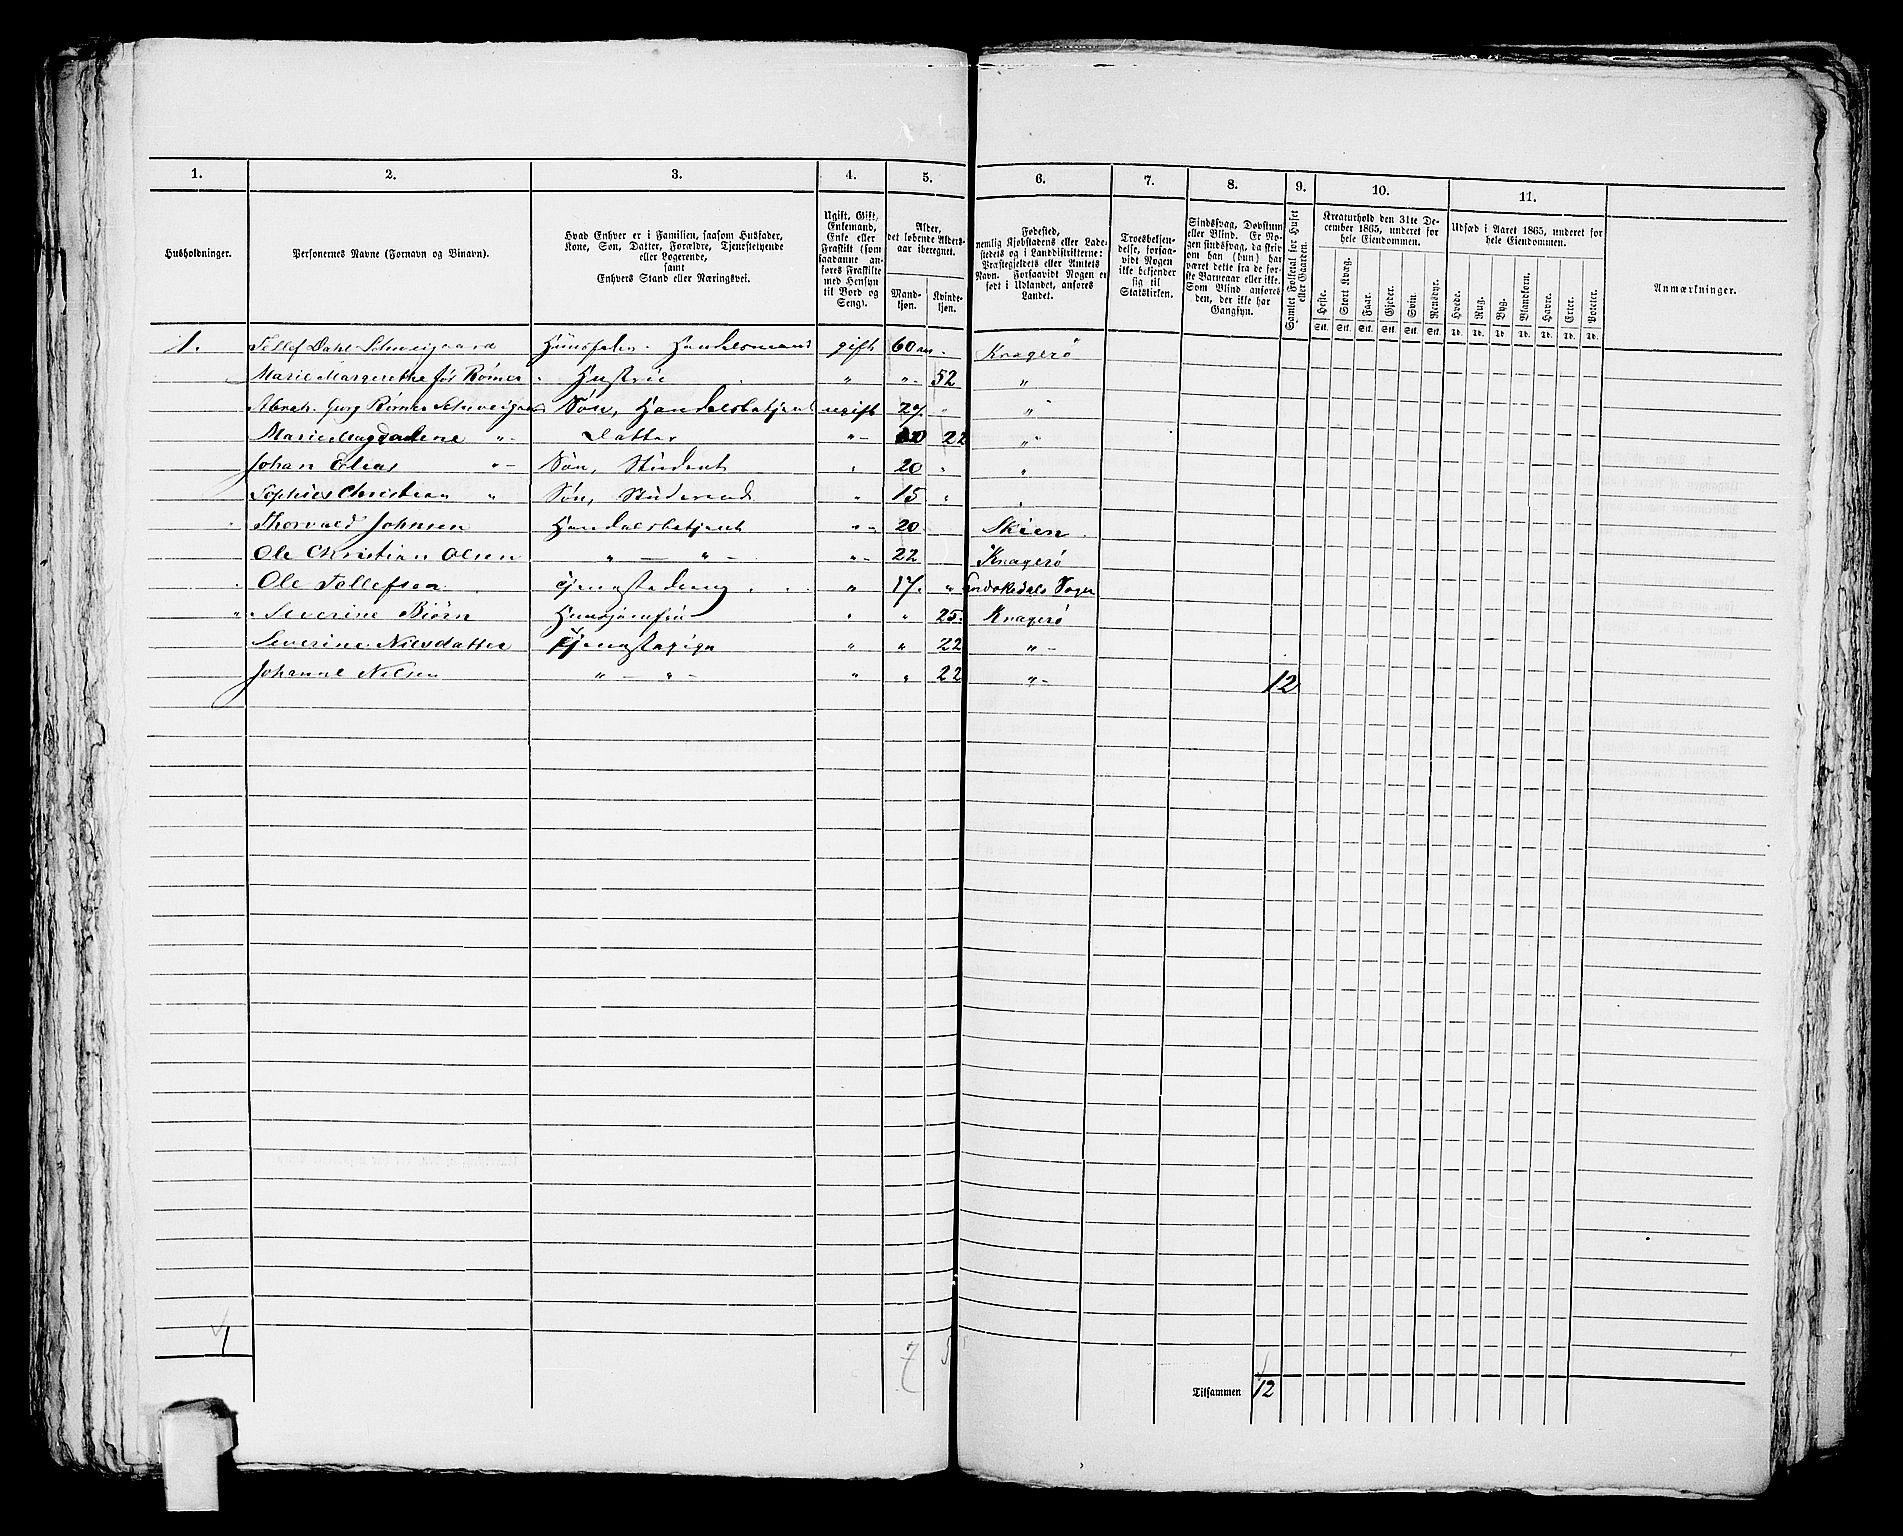 1. 2. 3. 4. 5. 6. 7. 8. 9. 10. 11.
Husholdninger.
Personernes Navne (Fornavn og Binavn).
Hvad Enhver er i Familien, saasom Husfader,
Kone, Søn, Datter, Forældre, Tjenstetyende
eller Logerende,
samt
Enhvers Stand eller Næringsvei.
Ugift, Gift,
Enkemand,
Enke eller
Fraskilt (som
saadanne anføres
Fraskilte
med Hensyn
til Bord og
Seng).
Alder,
det løbende Aldersaar
iberegnet.
Mandkjøn.
Kvindekjøn.
Fødested,
nemlig Kjøbstadens eller Ladestedets
og i Landdistrikterne:
Præstegjeldets eller Amtets
Navn. Forsaavidt Nogen er
født i Udlandet, anføres
Landet.
Troesbekjendelse,
forsaavidt
Nogen
ikke bekjender
sig til
Statskirken.
Sindssvag, Døvstum
eller Blind. Er Nogen
sindssvag, da skrives
om han (hun) har
været dette fra de første
Barneaar eller ikke.
Som Blind anføres
den, der ikke har
Gangsyn.
Samlet Folketal for Huset
eller Gaarden.
Kreaturhold den 31te December
1865, underet for
hele Eiendommen.
Heste. Stort Kvæg. Faar. Gjeder. Svin. Rensdyr.
Stk. Stk. Stk. Stk. Stk. Stk.
Udsæd i Aaret 1865, underet for
hele Eiendommen.
Hvede. Rug. Byg. Blandkorn. Havre. Erter. Poteter.
Td. Td. Td. Td. Td. Td. Td.
Anmærkninger.
1. Tellef Dahl Schweigaard Huusfader. Handelsmand gift 60 Kragerø
Marie Margerethe før Rømer Hustrue " " 52 "
Abrah. Rømer Schweigaard Søn, Handelsbetjent ugift 27 " "
Marie Magdalene " Datter " 22 "
Johan Elias " Søn, Student " 20 " "
Sophus Christian " Søn, Studerende " 15 "
Thorvald Johnsen Handelsbetjent " 20 Skien
Ole Christian Olsen " — " — " 22 Kragerø
Ole Tellefsen 17 " Sogn
Severine Biørn Huusjomfru " " 25 Kragerø
Severine Nielsdatter Tjenestepige " " 22 "
Johanne Nilsen " — " — " " 22 " 12
1 7 5
Tilsammen 12